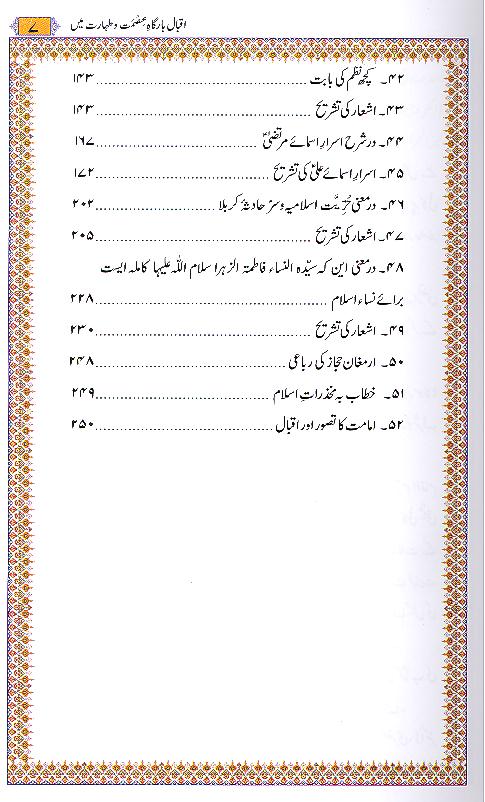 اقبال بارگاہِ عصمت و طہارت میں ۷
۴۲۔ کچھ نظم کی بابت ۱۴۳
۴۳۔ اشعار کی تشریح ۱۴۳
۴۴۔ در شرح اسرارِ اسمائے مرتضیٰؑ ۱۶۷
۴۵۔ اسرارِ اسمائے علیؑ کی تشریح ۱۷۲
۴۶۔ در معنی حُرِیَّت اسلامیہ و سر حادثۂ کربلا ۲۰۲
۴۷۔ اشعار کی تشریح ۲۰۵
۴۸۔ در معنی این کہ سیّدہ النساء فاطمۃ الزہرا سلام اللہ علیہا کاملہ ایست
برائے نساء اسلام ۲۲۸
۴۹۔ اشعار کی تشریح ۲۳۰
۵۰۔ ارمغان حجاز کی رباعی ۲۴۸
۵۱۔ خطاب بہ مخدراتِ اسلام ۲۴۹
۵۲۔ امامت کا تصور اور اقبال ۲۵۰